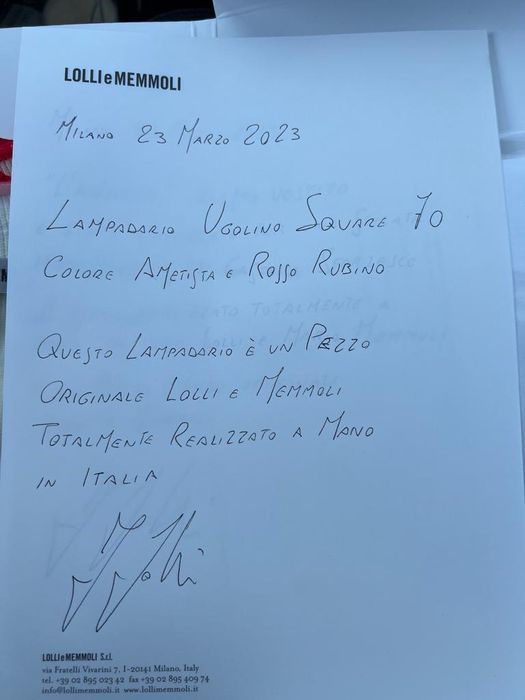 LOLLI e MEMMOLI
MILANO 23 MARZO 2023
LAMPADARIO UGOLINO SQUARE 70
COLORE AMETISTA E ROSSO RUBINO
QUESTO LAMPADARIO È UN PEZZO
ORIGINALE LOLLI E MEMMOLI
TOTALMENTE REALIZZATO A MANO
IN ITALIA
LOLLI e MEMMOLI S.r.l.
via Fratelli Vivarini 7, I-20141 Milano, Italy
tel. +39 02 895 023 42 fax +39 02 895 409 74
info@lollimemmoli.it www.lollimemmoli.it